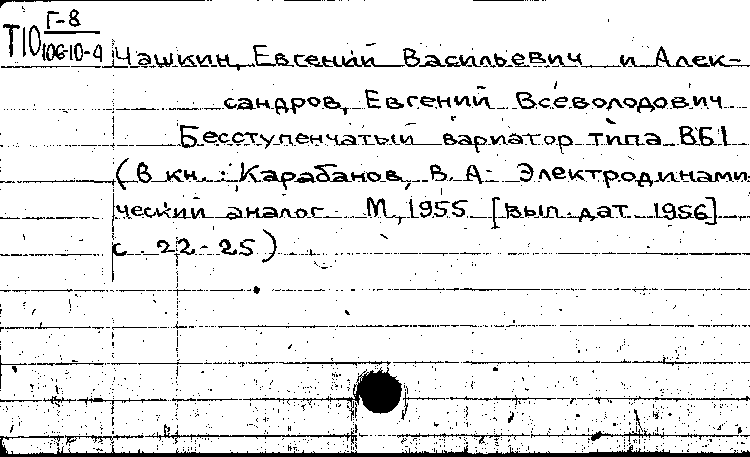 Г-8
Т10 106-10-4
Чашкин, Евгений Васильевич и Алек-
сандров, Евгений Всеволодович
Бесступенчатый вариатор типа ВБ1
(В кн.: Карабанов, В.А. Электродинами
ческий аналог. М., 1955 [вып. дат. 1956]
с. 22-25)